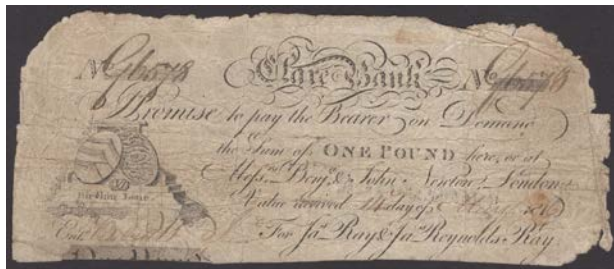 No G6578 Clare Bank No G6578
I Promise to pay the Bearer on Demand
the Sum of ONE POUND here, or at
Messrs. Benjn. & John Newton London
Value received 14 day of
Entd. For Jas. Ray & Jas. Reynolds Ray